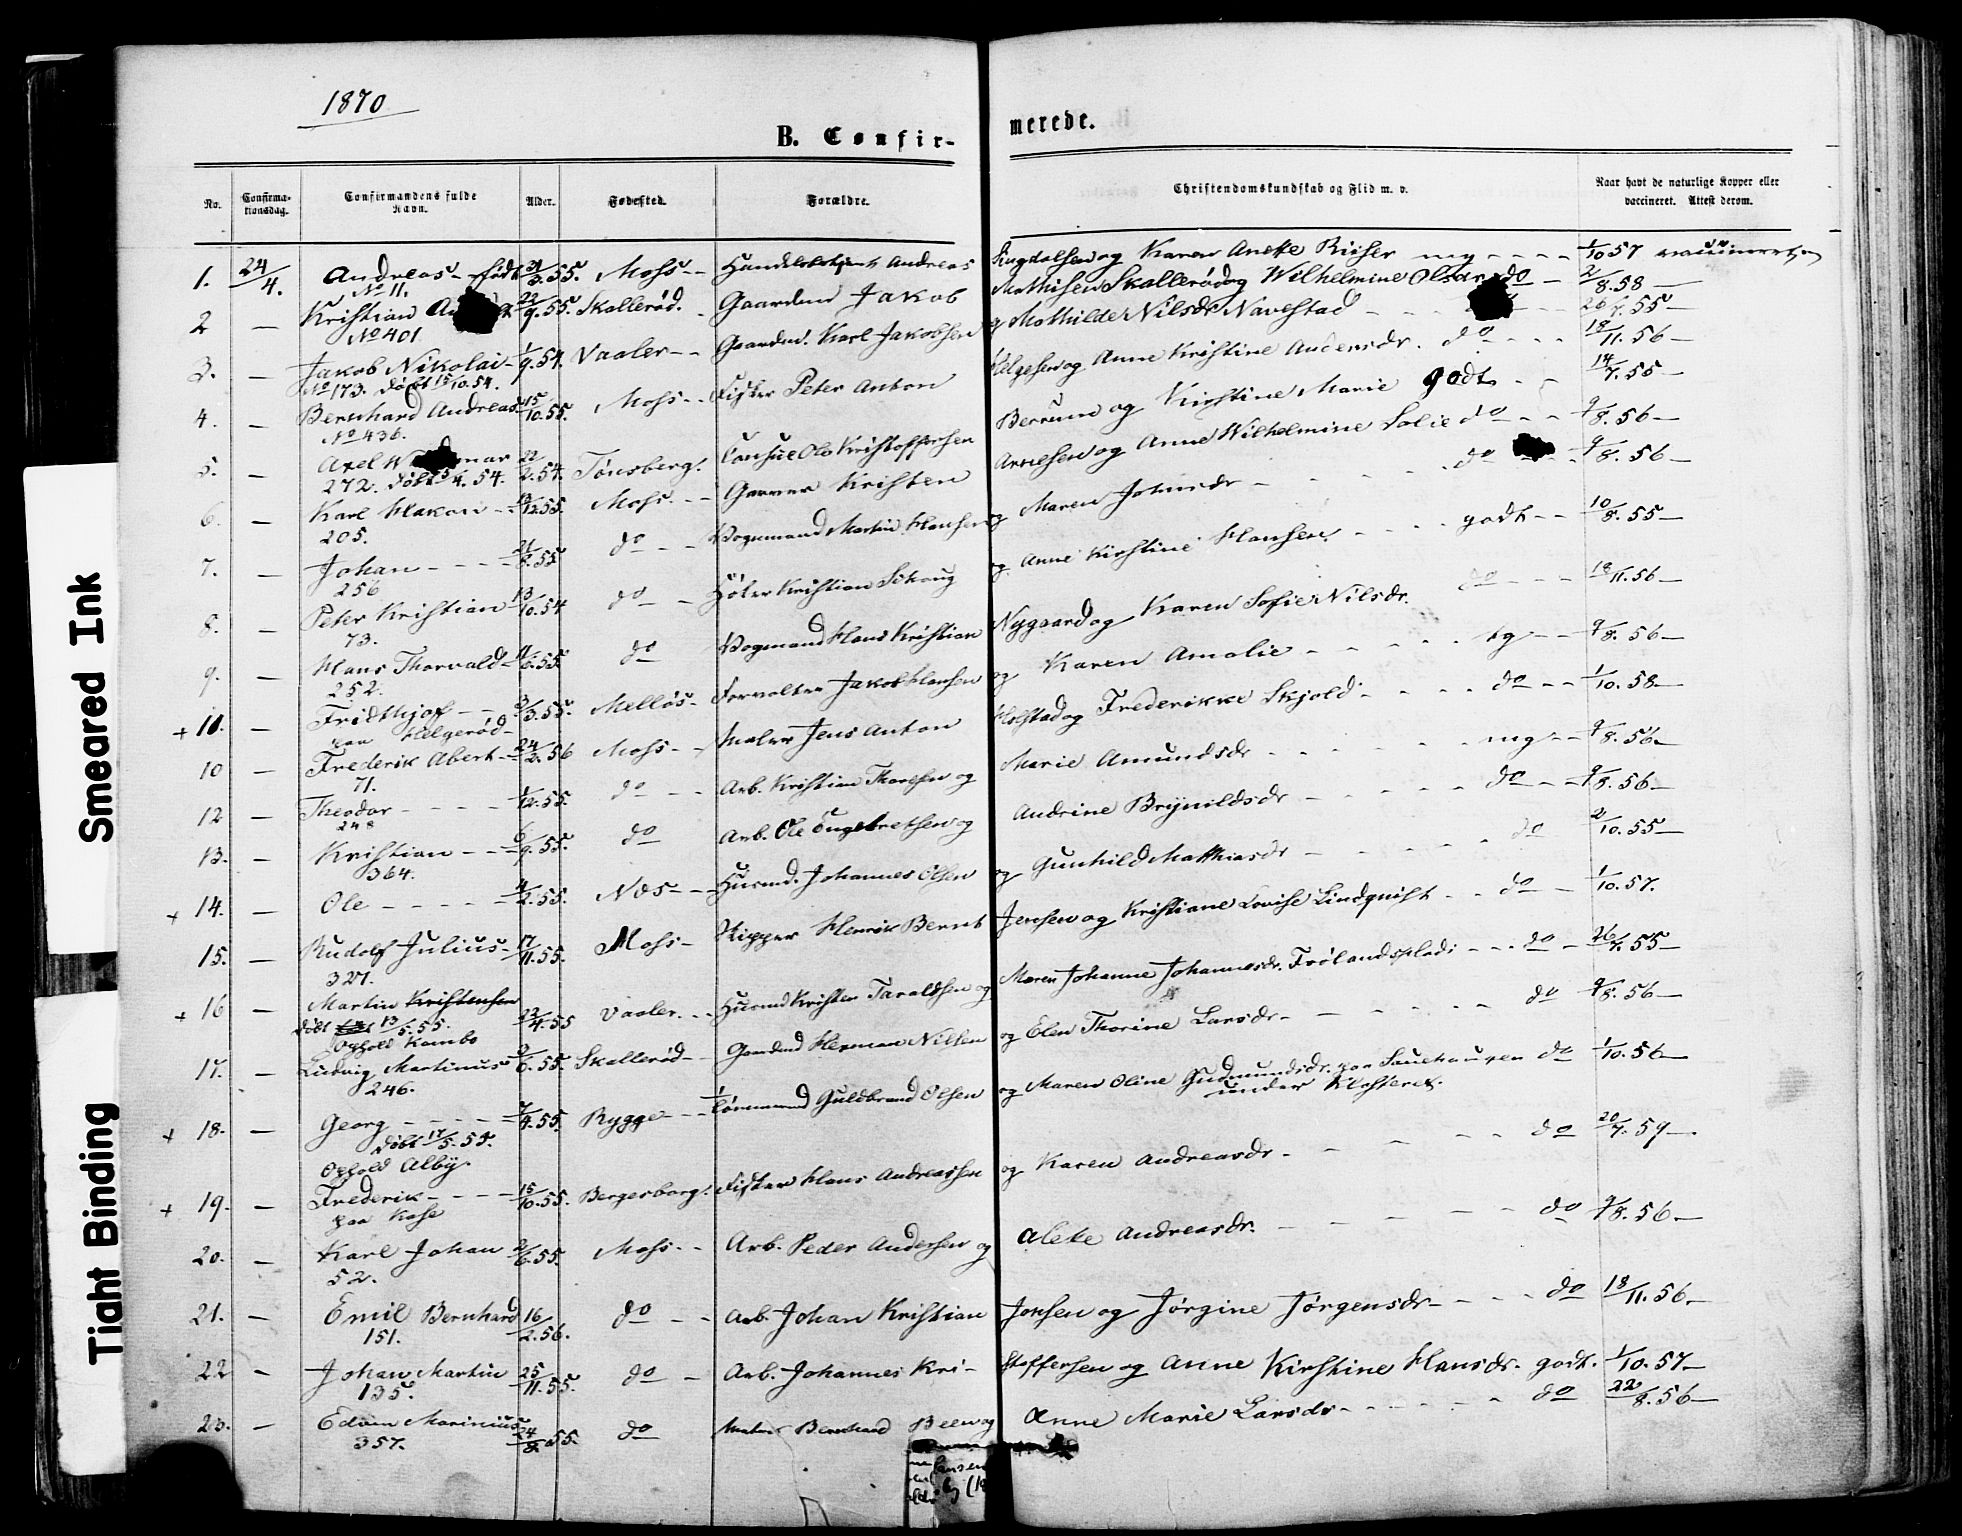 1870
B. Confir-
merede.
No.
Confirma-
tionsdag.
Confirmandens fulde
Navn.
Alder.
Fødested.
Forældre.
Christendomskundskab og Flid m. v.
Naar havt de naturlige Kopper eller
vaccineret. Attest derom.
1. 24/4. Andreas - født 31/3.55. Moss - - Andreas og Karen Anette Riiser mg - - - - 1/10 57
No 11.
2 — Kristian 22/9.55. Skallerød. Gaardmd Jakob Mathisen Skallerød og Wilhelmine Olsen do — 2/8.58 —
No 401
3. — Jakob Nikolai - 1/9.54. Vaaler - - Gaardmd. Karl Jakobsen og Mathilde Nilsdr Navestad - - - 26/7.55 —
No 173. Døbt 15/10.54.
4. — Bernhard Andreas 15/10.55. Moss - - Fisker Peter Anton Helgesen og Anne Kristine Andersdr. do - - - - 18/11.56 —
No 436.
5. — Axel 22/2.54. Tønsberg. Ole Kristoffersen Berrum og Kirstine Marie godt - - 14/7.55 —
272. Døbt 5/4.54.
6. — Karl Hakon - - 13/12.55. Moss - - Garver Kristen Arnesen og Anne Wilhelmine Lolie do - - 9/8.56 —
205.
7. — Johan - - - - 21/8.55 do - - Vognmand Martin Hansen og Maren Johnsdr - - - - do 9/8.56 —
256
8. — Peter Kristian 13/10.54 do — Kristian Sikoug og Anne Kirstine Hansen. - - - godt - - 10/8.55 —
73.
9. — Hans Thorvald - 11/6.55 do Vognmand Hans Kristian Nygaard og Karen Sofie Nilsdr. do - - - 18/11.56 —
252.
+ 11. — Fridthjof - - 3/3.55. Melløs - Forvalter Jakob Hansen og Karen Amalie - - - - - tg - - 9/8.56 —
paa Helgerød -
10 — Frederik Abert - 24/2.56 Moss - - Maler Jens Anton Holstad og Frederikke Skjold - - - - do - - 1/10.58 —
71.
12 — Theodor - - - - 1/12.55. do - - Arb. Kristian Thoresen og Marie Amundsdr - - - - - mg - - 9/8.56 —
248
13. — Kristian - - - 6/9.55. do Arb. Ole Engebretsen og Andrine Brynildsdr - - - - do - - 9/8.56 —
364.
+ 14. — Ole - - - - - 4/2.55. Næs - - - Husmd. Johannes Olsen og Gunhild Matthiasdr - - - - do 2/10.55 —
15. — Rudolf Julius - 17/11.55. Moss - Skipper Henrik Bernt Jensen og Kristiane Lovise Lindquist - - do — 1/10.57.
327.
+ 16 — Martin Kristensen 23/4.55 Vaaler - - - Husmd Kristen Taraldsen og Maren Johanne Johannesdr. Frølandsplads - - - do - 26/7.55 —
Døbt 13/5.55.
Ophold Kambo
17. — Ludvig Martinius 2/6.55 Skallerød - Gaardmd Herman Nilsen og Elen Thorine Larsdr - - - - - do 9/8.56 —
246.
+ 18. — Georg - - - - - 7/4.55. Rygge - - - Guldbrand Olsen og Maren Oline Gudmundsdr. paa Sauehaugen do 1/10.56 —
under Klosteret.
Døbt 17/5.55.
Ophold Alby.
+ 19. — Frederik - - - - 15/10.55. Bergersborg. Fisker Hans Andreassen og Karen Andreasdr - - - - do 20/7.59 —
paa Kase
20. — Karl Johan 2/6.55 Moss - - Arb. Peder Andersen og Alette Andreasdr. - - - - do 9/8.56 —
52.
21. — Emil Bernhard 16/2.56. do - - Arb. Johan Kristian Jonsen og Jørgine Jørgensdr - - - - do 18/11.56 —
151.
22 — Johan Martin 25/11.55. do - Arb. Johannes Kri-stoffersen og Anne Kirstine Hansdr. godt. 1/10.57 —
135.
23. — Edvin Marinius 24/8.55. do Bernhard Been og Anne Marie Larsdr - - - - - do 22/8.56 —
357.
Smeared Ink
Tight Binding